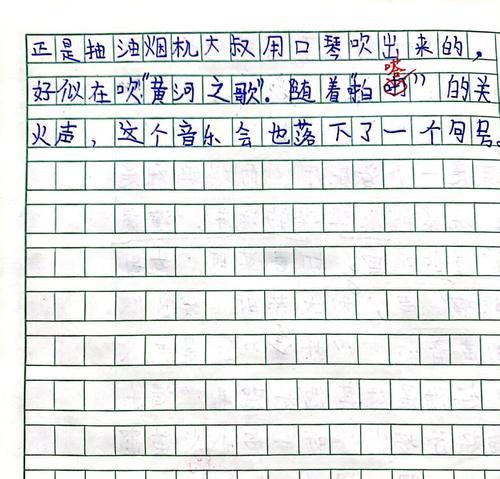 正是抽油烟机大叔用口琴吹出来的，
好似在吹“黄河之歌”。随着“啪嗒”的关
火声，这个音乐会也落下了一个句号。